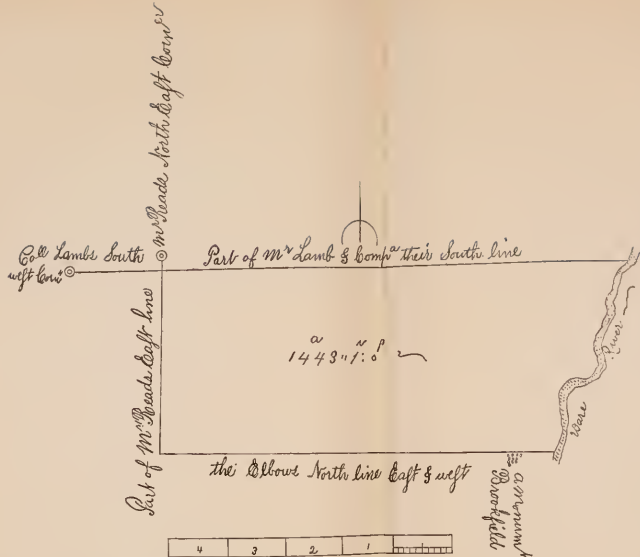 Mr Reads North East Corner
Coll Lambs South
west Cornr
Part of Mr Lamb & Compa their South line
Part of Mr Reads East line
a r p
1443"1:0
Ware River
the Elbows North line East & west
a monumt
Brookfield
4 3 2 1